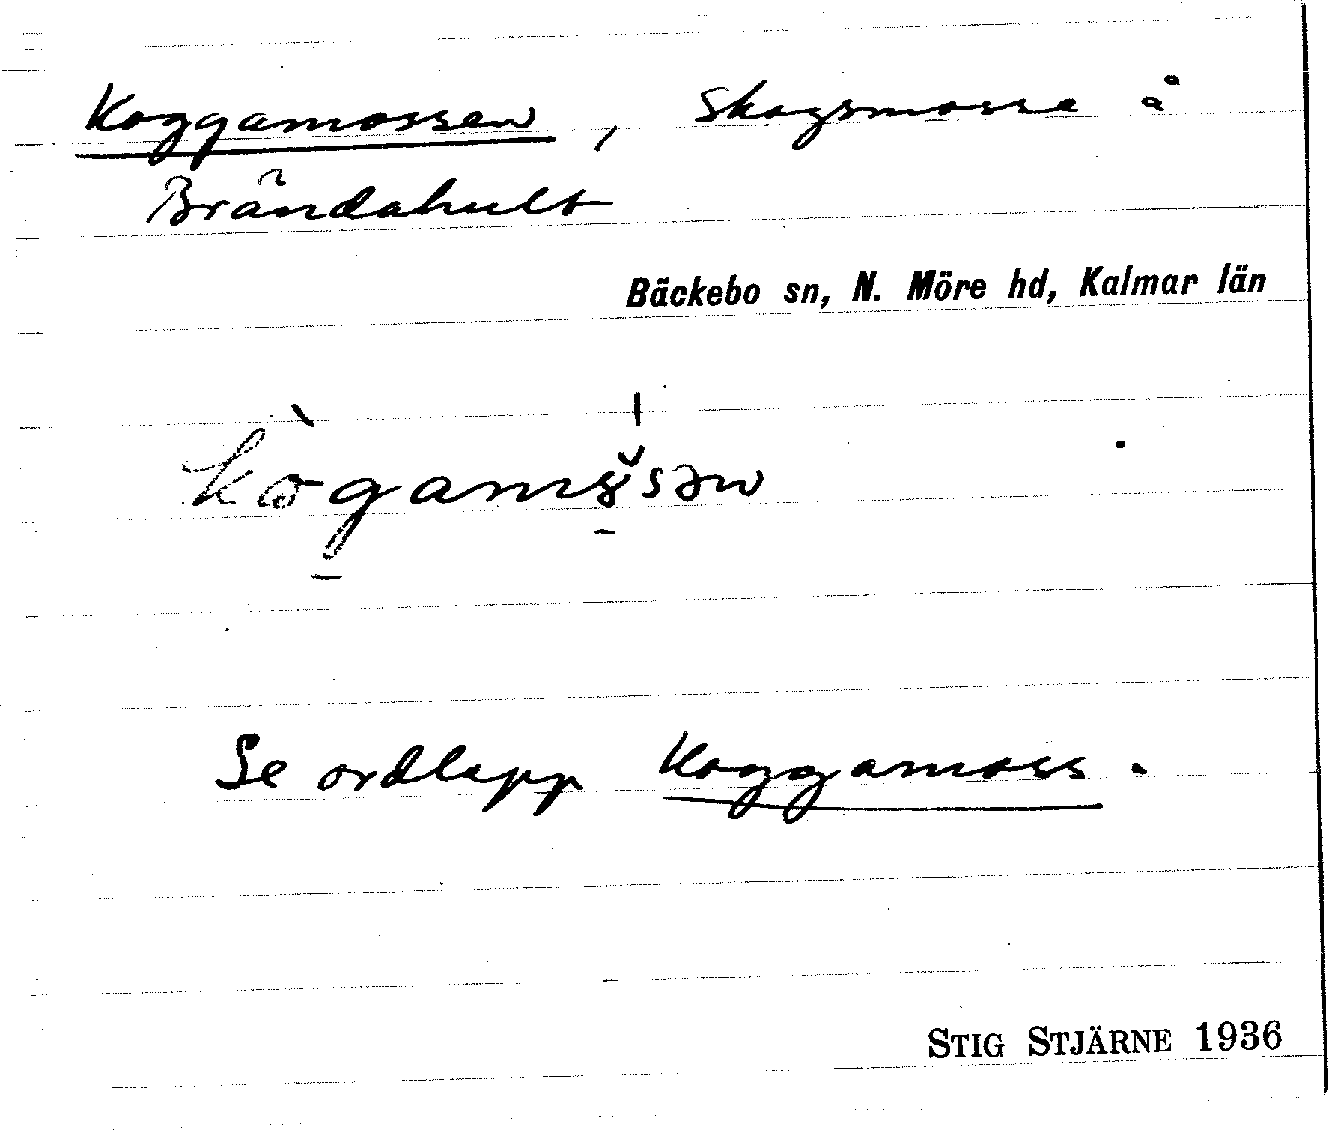 Koggamossen, Skogsmosse å
Brändahult
Bäckebo sn, N. Möre hd, Kalmar län
Se ordlapp Koggamoss.
STIG STJÄRNE 1936